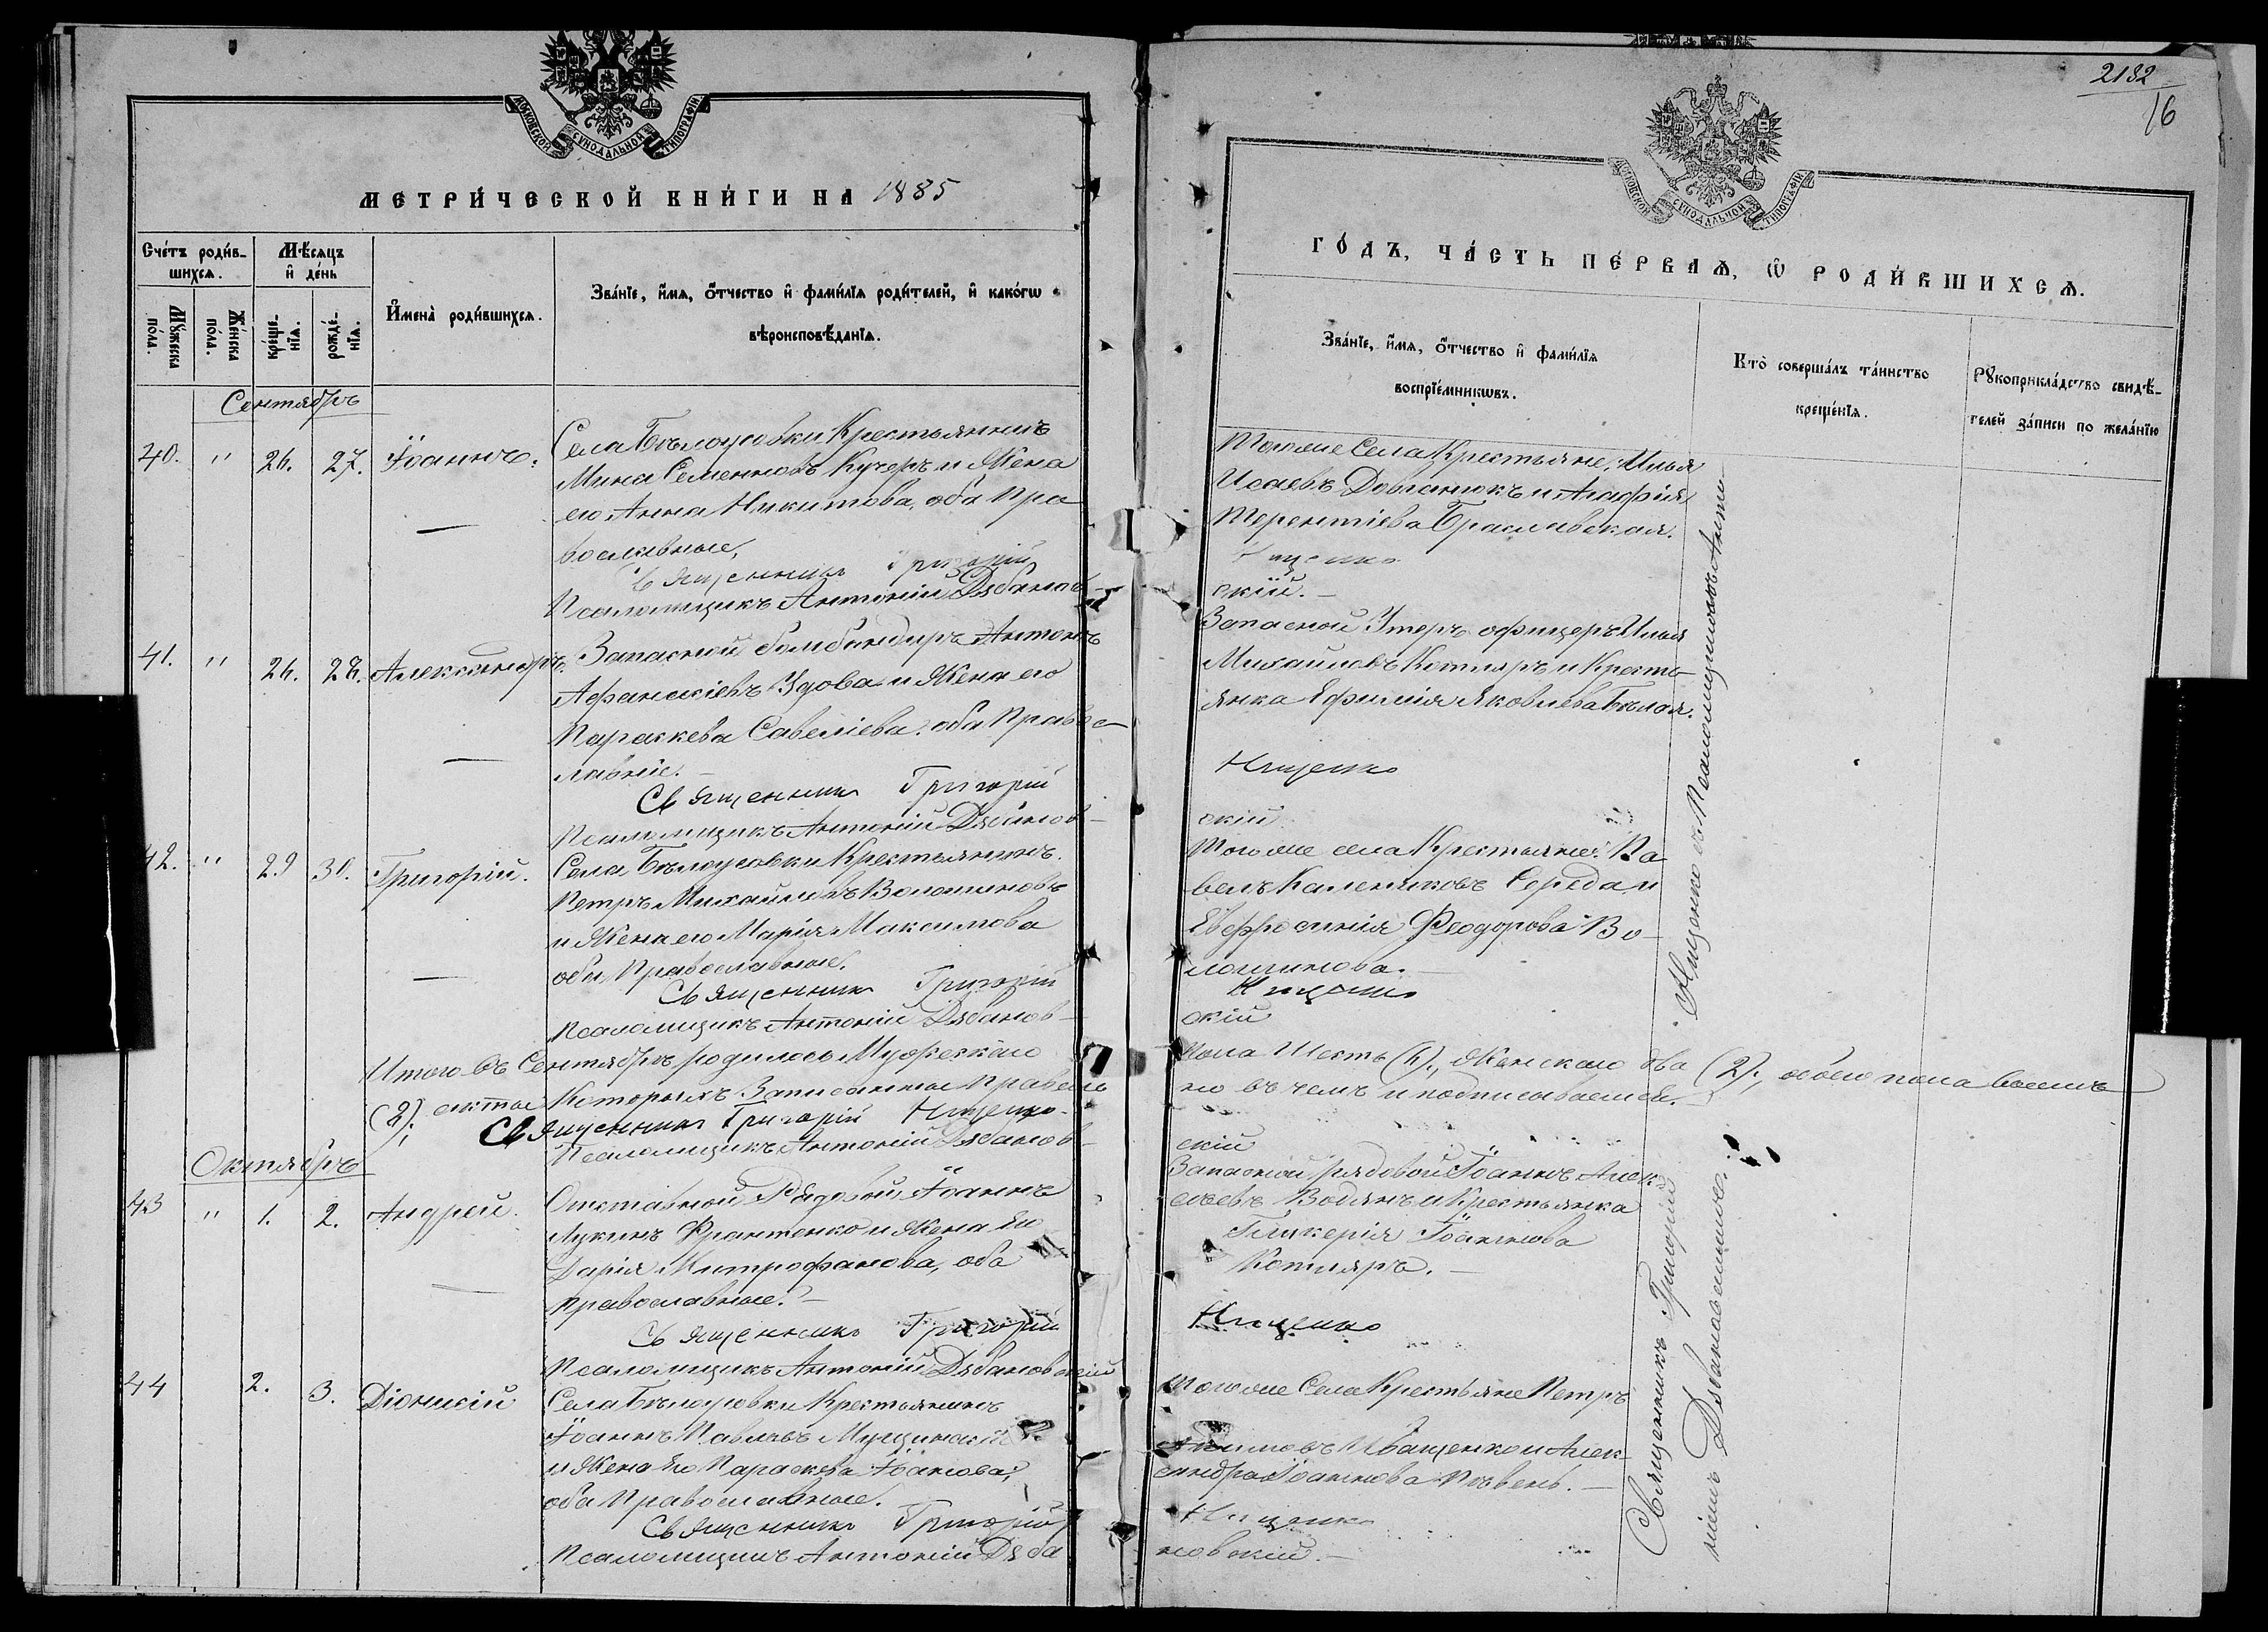 МОСКОВСКОЙ СУНОДАЛЬНОЙ ТИПОГРАФІИ
МЕТРИ́ЧЕСКОЙ КНИ́ГИ НА 1885
Сче́тъ роди́вшихсѧ.
Мꙋ́жеска по́ла.
Же́нска по́ла.
Мѣ́сѧцъ и҆ де́нь
креще́-нїѧ.
рожде́-нїѧ.
И҆мена̀ роди́вшихсѧ.
Зва́нїе, и҆́мѧ, ѻ҆́тчество и҆ фами́лїѧ роди́телей, и҆ како́гѡ
вѣроисповѣ́данїѧ.
Сентябрь
40. " 26. 27. Іоаннъ.
Села Бѣлоусовки Крестьянинъ
Мина Семеновъ Кучеръ и Жена
его Анна Никитова, оба Пра
вославные,
Священникъ Григорій
Псаломщикъ Антоній Дябанов
41. " 26. 28. Александръ.
Запасной бомбандиръ Антонъ
Афанасіевъ Удова и Жена его
Параскева Савеліева, оба Правос
лавніе.
Священникъ Григорій
Псаломщикъ Антоній Дябанов
42. " 29 30. Григорій.
Села Бѣлоусовки Крестьянинъ
Петръ Михайловъ Волошиновъ
и Жена его Марія Максимова
оба Православные.
Священникъ Григорій
Псаломщикъ Антоній Дябанов
Итого въ Сентябрѣ родилось Мужескаго
(8). Которыхъ Записанные Правель
Священникъ Григорій Нищенко
Псаломщикъ Антоній Дябанов
Октябрь
43 " 1. 2. Андрей.
Отставной Рядовой Іоаннъ
Лукинъ Франтенко и Жена Его
Дарія Митрофанова, оба
православные.
Священникъ Григорій
Псаломщикъ Антоній Дябановскій
44 2. 3. Діонисій
Села Бѣлоусовки Крестьянинъ
Іоаннъ Павловъ
и Жена Его Параскева Іоанова,
оба Православные.
Священникъ Григорій
Псаломщикъ Антоній Дяба
2182
16
МОСКОВСКОЙ СУНОДАЛЬНОЙ ТИПОГРАФІИ
ГО́ДЪ, ЧА́СТЬ ПЕ́РВАѦ, Ѡ҆ РОДИ́ВШИХСѦ.
Зва́нїе, и҆́мѧ, ѻ҆́тчество и҆ фами́лїѧ
воспрїе́мникѡвъ.
Кто̀ соверша́лъ та́инство
креще́нїѧ.
Рꙋкоприкла́дство свидѣ́-
телей за́писи по жела́нїю
Того же Села Крестьяне, Илья
Исаевъ Довганюкъ и Агафія
Терентіева Браславская.
Нищенко
скій.
Запасной Унтеръ офицеръ Илья
Михайловъ Котляръ и Кресть
янка Ефимія Яковлева Бѣлая.
Нищенко
скій
Того же села Крестьяне: Па
велъ Калениковъ Середа и
Евфросинія Феодорова Во-
лошинова.
Нищенко
скій
пола Шесть (6)., Женскаго два (2)., обоего пола восемь
но въ чемъ и подписываемся.
скій
Запасной рядовой Іоаннъ Алек-
сѣевъ Водянъ и Крестьянка
Гликерія Іоаннова
Котляръ.
Нищенко
Того же Села Крестьяне Петръ
Иващенко и Алек-
сандра Іоаннова Пѣвень.
Нищенко
новскій.
Священникъ Григорій Нищенко съ Псаломщикомъ Анто
ніемъ Дябановскимъ.